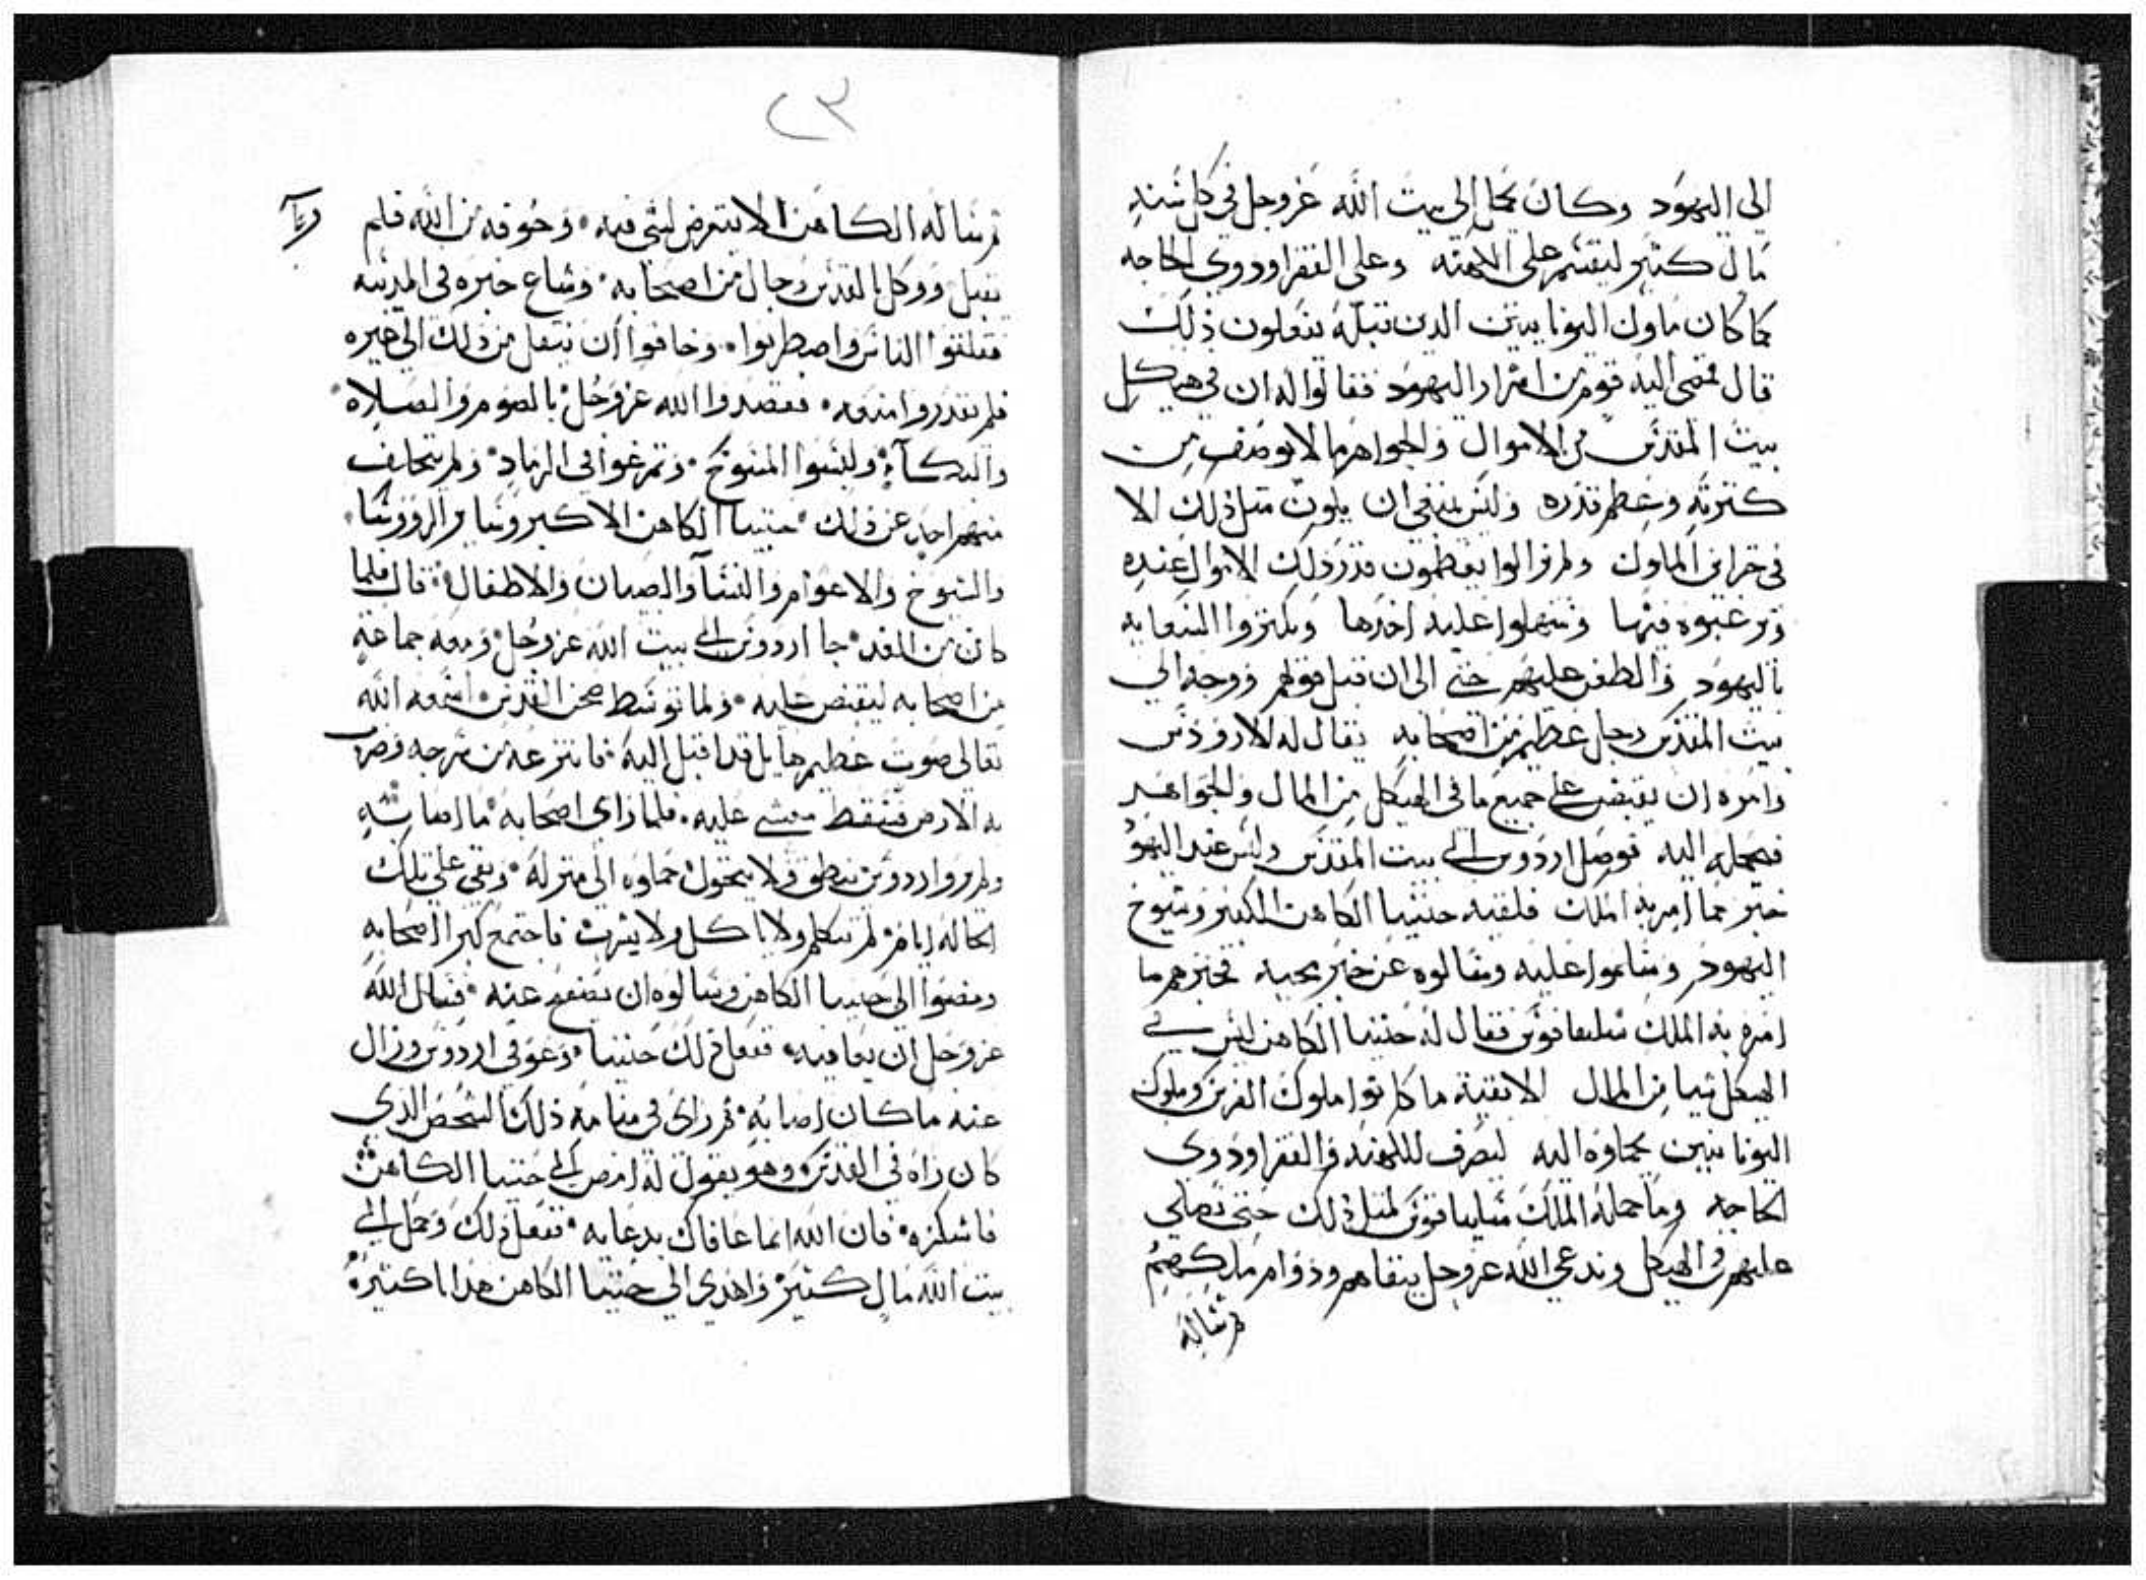 الي اليهود وكان يحمل الي بيت الله عز وجل في كل سنه
مال كثير ليقسم علي الايمه وعلي الفقرا وذوي الحاجه
كما كان ملوك اليونانيين الدين قبله يفعلون ذلك
قال فمضي اليه قوم من اشرار اليهود فقالوا له ان في هيكل
بيت المقدس من الاموال والجواهر ما لا يوصف من
كثرته وعظم قدره وليس ينبغي ان يكون مثل ذلك الا
في خزاين الملوك ولم يزالوا يعظمون قدر ذلك الاموال عنده
ويرغبوه فيها ويسهلوا عليه اخدها ويكثروا السعايه
باليهود والطعن عليهم حتي الي ان قبل قولهم ووجه الي
بيت المقدس رجل عظيم من اصحابه يقال له الاردوس
وامره ان يقبض علي جميع ما في الهيكل من المال والجواهر
فيحمله اليه فوصل اردوس الي بيت المقدس وليس عند اليهود
خبر مما امر به الملك فلقيه حننيا الكاهن الكبير وشيوخ
اليهود وسلموا عليه وسالوه عن خبر مجيه فخبرهم ما
امره به الملك سليقانوس فقال له حننيا الكاهن ليس في
الهيكل شيا من المال الا بقية ما كانوا ملوك الفرس وملوك
اليونانيين يحملوه اليه ليصرف للكهنه والفقرا وذوي
الحاجه وما حمله الملك سليقانوس لمثل ذلك حتي نصلي
عليهم في الهيكل وندعي الله عز وجل ببقاهم ودوام ملكهم
ثم ساله
٢٣
ثم ساله الكاهن الا يتعرض لشي فيه وخوفه من الله فلم
يقبل ووكل بالقدس رجال من اصحابه وشاع خبره في المدينه
فقلقوا الناس واضطربوا وخافوا ان ينتقل من ذلك الي غيره
فلم يقدروا منعه فقصدوا الله عز وجل بالصوم والصلاه
والبكاء ولبسوا المسوح وتمرغوا في الرماد ولم يتخلف
منهم احد عن ذلك حننيا الكاهن الاكبر وساير الروسا
والشيوخ والاعوام والنسآ والصبيان والاطفال قال فلما
كان من الغد جا اردوس الي بيت الله عز وجل ومعه جماعه
من اصحابه ليقبض عليه ولما توسط صحن القدس اسمعه الله
تعالي صوت عظيم هايل قد اقبل اليه فانتزعه من سرجه وضرب
به الارض فسقط مغشي عليه فلما راي اصحابه ما اصابه
ولم يروا اردوس ينطق ولا يتحول حملوه الي منزله وبقي علي تلك
الحاله اياما لم يتكلم ولا ياكل ولا يشرب فاجتمع كبرا اصحابه
ومضوا الي حننيا الكاهن وسالوه ان يصفح عنه فسال الله
عز وجل ان يعافيه ففعل ذلك حننيا وعوفي اردوس وزال
عنه ما كان اصابه ثم راي في منامه ذلك الشخص الذي
كان راه في القدس وهو يقول له امض الي حننيا الكاهن
فاشكره فان الله انما عافاك بدعايه ففعل ذلك وحمل الي
بيت الله مال كثير واهدي الي حننيا الكاهن هدايا كثيره